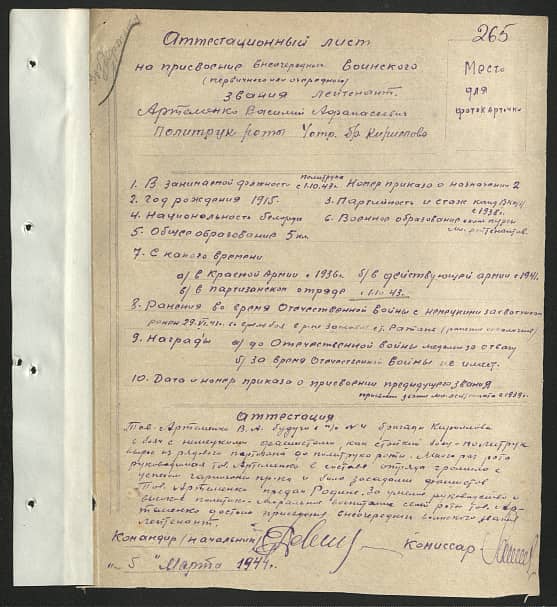 265
Аттестационный лист
на присвоение внеочередного воинского
(первичного или очередного)
звания лейтенант
Место
для
фотокарточки
Артеменко Василий Афанасьевич
Политрук роты
бр. Кириллова
1. В занимаемой должности политрука с 1.10.43г. Номер приказа о назначении 2
2. Год рождения 1915. 3. Партийность и стаж
с 1938г.
4. Национальность белорус 6. Военное образование курсы
мл. лейтенантов.
5. Общее образование 5 кл.
7. С какого времени
а) в Красной Армии с 1936г. б) в действующей армии с 1941
в) в партизанском отряде с 1.10.43.
8. Ранения во время Отечественной войны с немецкими захватчиками
ранен 29.VI.41г.
9. Награды а) до Отечественной войны медаль за отвагу
б) за время Отечественной войны не имеет.
10. Дата и номер приказа о присвоении предыдущего звания
с 1939г.
Аттестация
Тов. Артеменко В.А. будучи в п/о №4 бригады Кириллова
в боях с немецкими фашистами, как стойкий боец - политрук
вырос из рядового партизана до политрука роты. Много раз рота
руководимая тов. Артеменко в составе отряда громила с
успехом гарнизоны пр-ка и била засадами фашистов
Тов. Артеменко предан Родине. За умелое руководство и
политико-моральное воспитание своей роты тов. Ар-
теменко достоин присвоения внеочередного воинского звания
"лейтенант".
Командир (начальник)
Комиссар
"5" Марта 1944г.